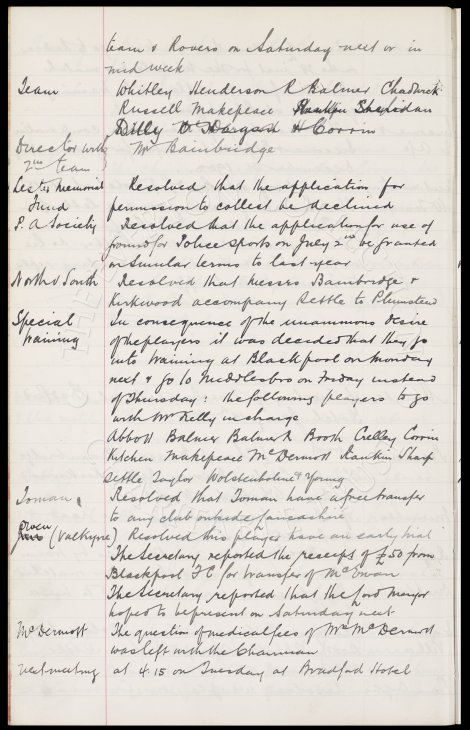 team & Rovers on Saturday next or in
mid week
Team Whitley Henderson R Balmer Chadwick
Russell Makepeace Rankin Sheridan
Dilly H Corrin
Director with 2nd team } Mr Bainbridge
Lester Memorial Fund Resolved that the application for
permission to collect be declined
P. A Society Resolved that the application for use of
ground for Police sports on July 2nd be granted
on similar terms to last year
North v South Resolved that Messrs Bainbridge &
Kirkwood accompany Settle to Plumstead
Special training In consequence of the unanimous desire
of the players it was decided that they go
into training at Blackpool on Monday
next & go to Middlesbro on Friday instead
of Thursday: the following players to go
with Mr Kelly in charge
Abbott Balmer Balmer R Booth Crelley Corrin
Kitchen Makepeace McDermott Rankin Sharp
Settle Taylor Wolstenholme & Young
Toman Resolved that Toman have a free transfer
to any club outside Lancashire
Owen (Valkyrie) Resolved this player have an early trial
The Secretary reported the receipt of £50 from
Blackpool FC for transfer of McEwan
The Secretary reported that the Lord Mayor
hoped to be present on Saturday next
McDermott The question of medical fees of Mr McDermott
was left with the Chairman
next meeting at 4.15 on Tuesday at Bradford Hotel